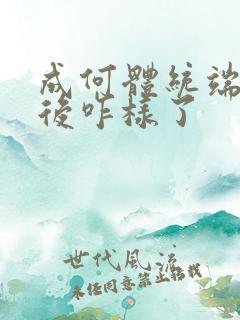 成何體統端
後咋樣了
世代風流
未經同意禁止轉載